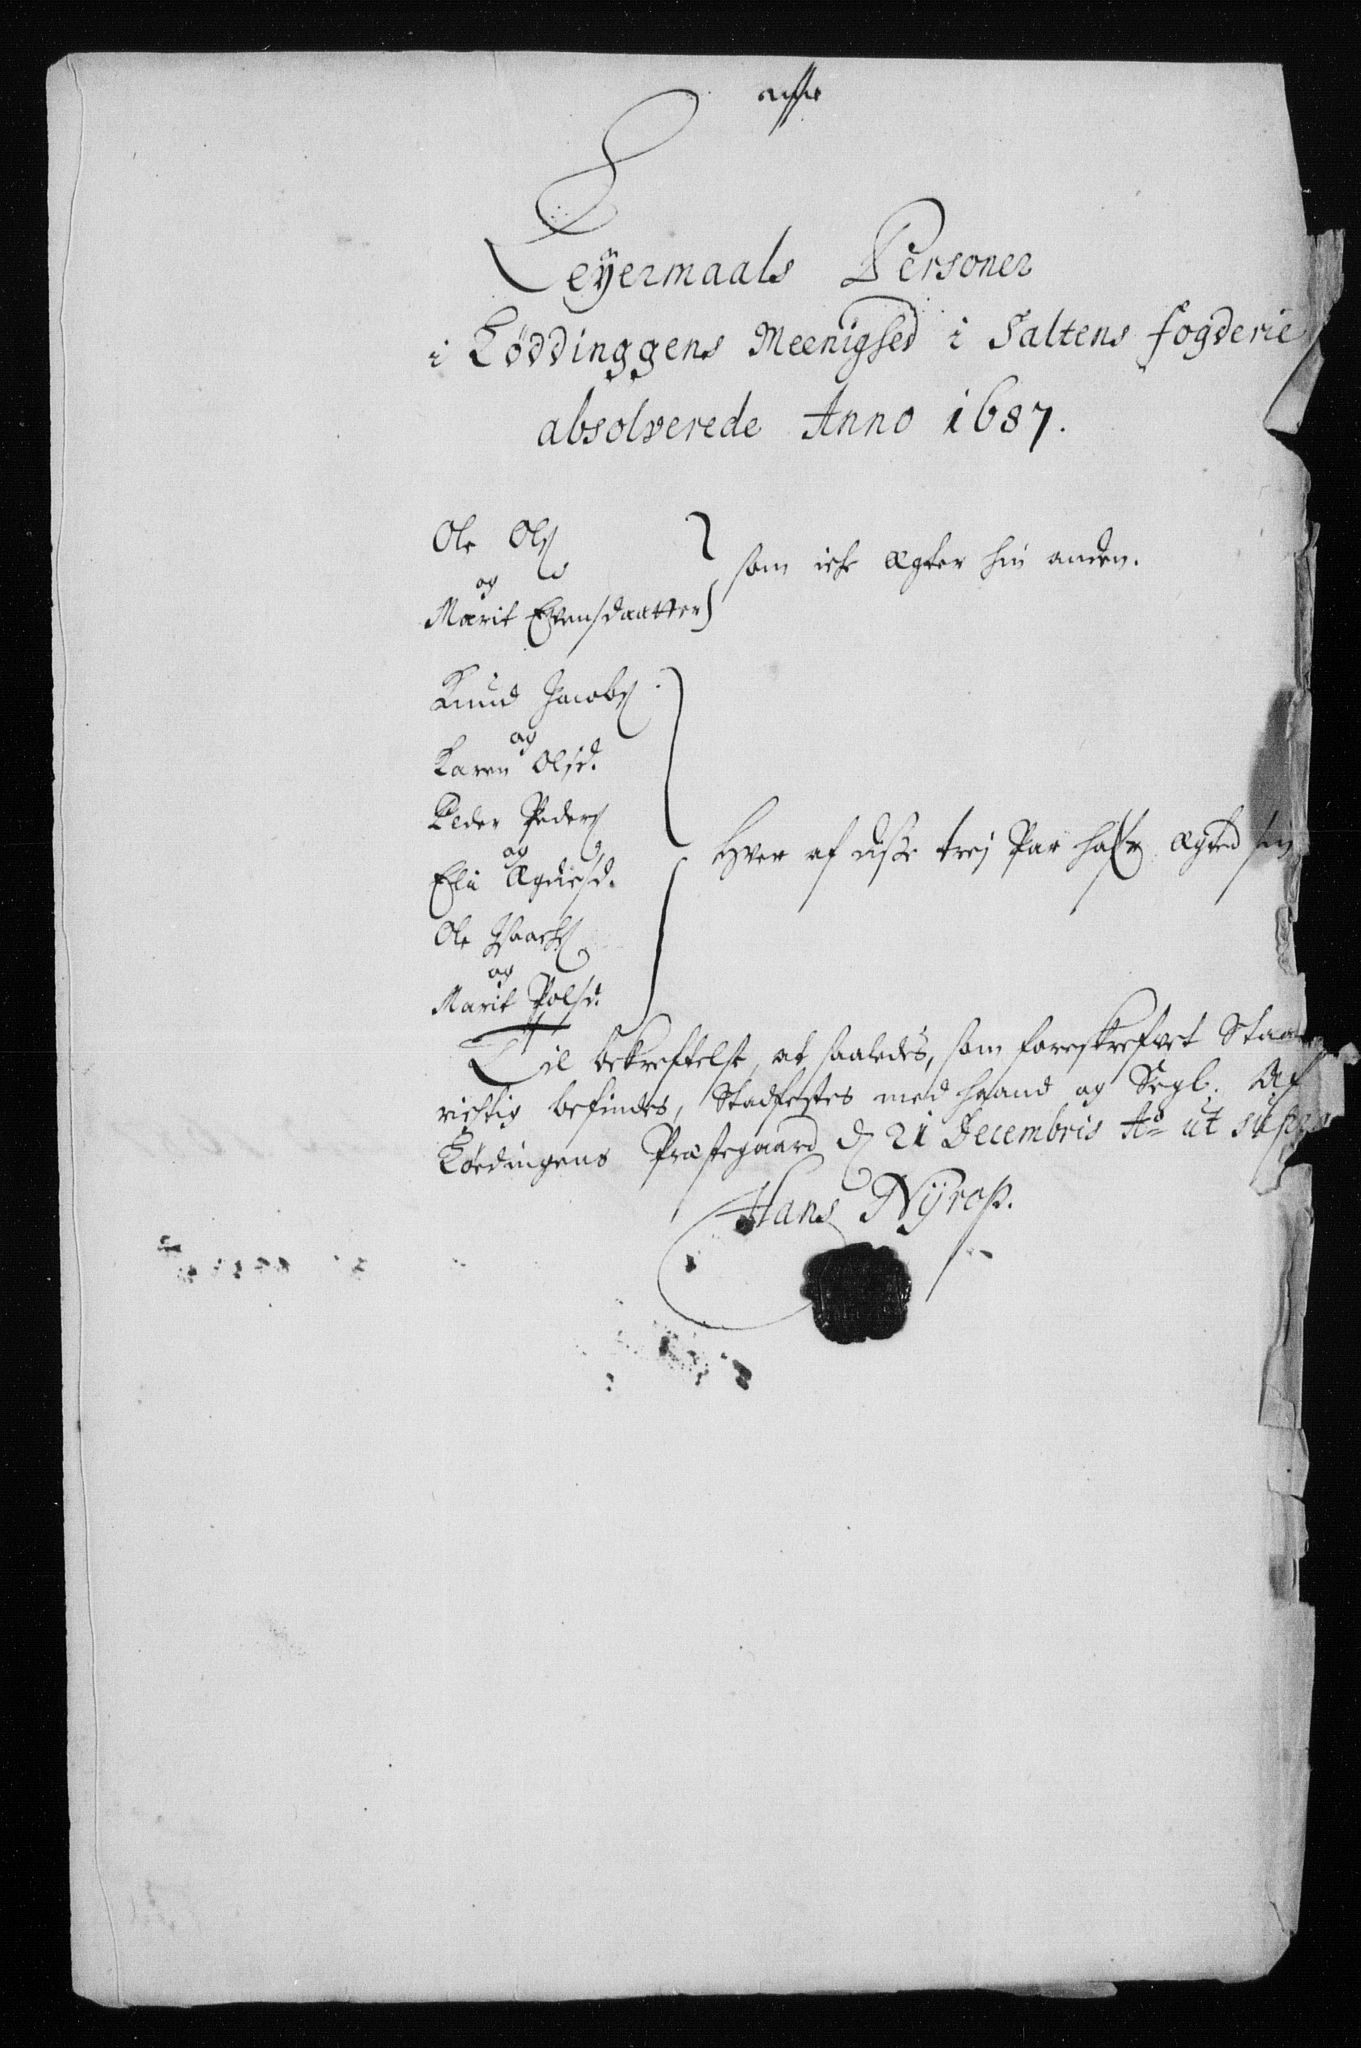 Leÿermaals Personer
i Løddinggens Meenighed i Saltens fogderie
absolverede Anno 1687.
Ole Ols
og
Marit Evensdaatter
som icke ægter hin anden.
Knud Jacobs
og
Karen Olsd.
Peder Peders
og
Eli Ægdiesd.
Ole Isaachs
og
Marit Polsd.
Hver af disse trej Par hafr ægted
Til bekreftelse, at saaledes, som foreskrefvet Staar
richtig befindes, Stadfestes med haand og Segl. Af
Lødingens Præstegaard d 21 Decembris Ao ut supra
Hans Nÿrop.